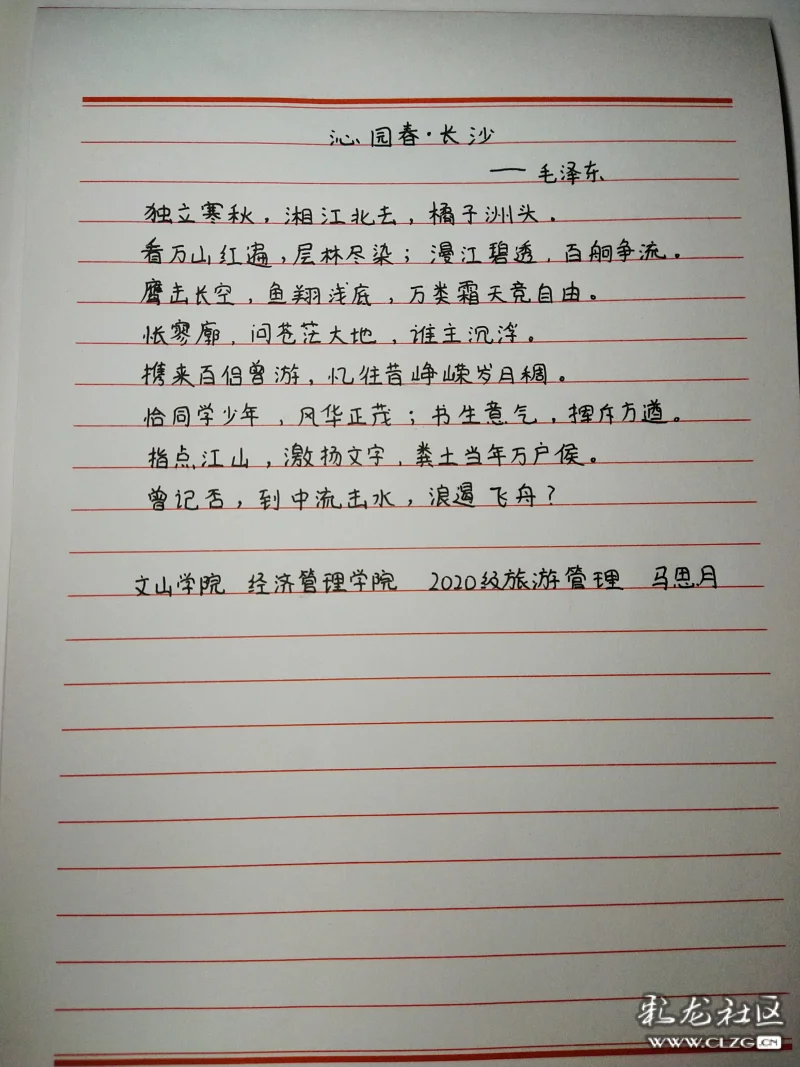 沁园春·长沙
——毛泽东
独立寒秋，湘江北去，橘子洲头。
看万山红遍，层林尽染；漫江碧透，百舸争流。
鹰击长空，鱼翔浅底，万类霜天竞自由。
怅寥廓，问苍茫大地，谁主沉浮。
携来百侣曾游，忆往昔峥嵘岁月稠。
恰同学少年，风华正茂；书生意气，挥斥方遒。
指点江山，激扬文字，粪土当年万户侯。
曾记否，到中流击水，浪遏飞舟？
文山学院 经济管理学院 2020级旅游管理 马思月
彩龙社区
WWW.CLZG.CN